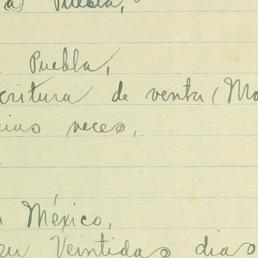 a) Puebla,
Puebla,
critura de venta (Mo
rias veces,
México,
su Veintidas dias